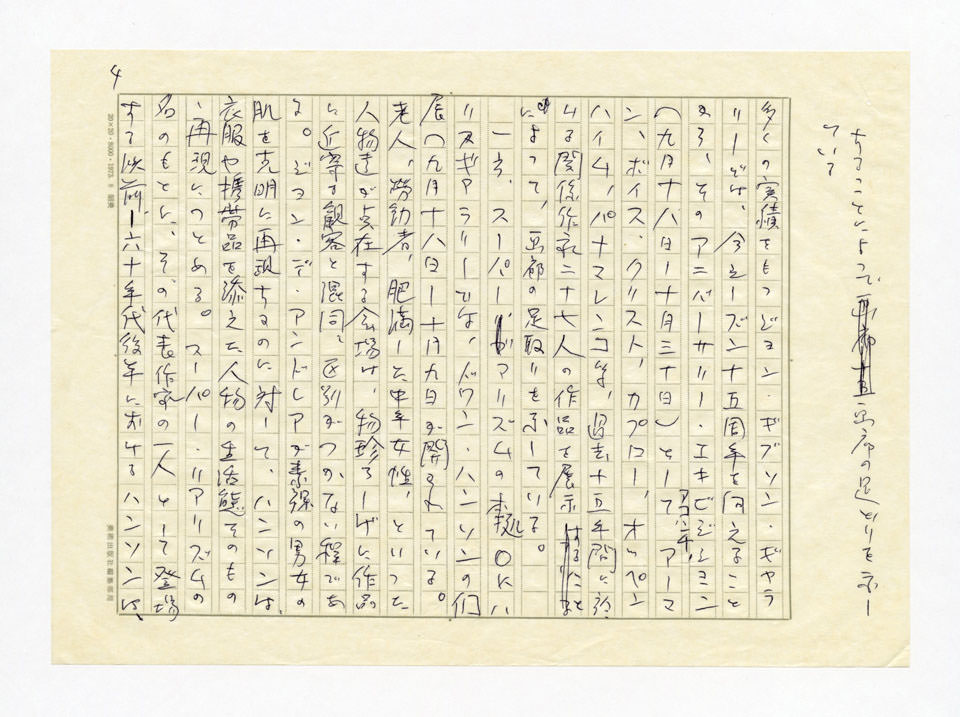 することによって、画廊の足どりを示し
ている
4
多くの実績をもつジョン・ギブソン・ギャラ
リーでは、今シーズン十五周年を向えること
から、そのアニバーサリー・エキビジション
(九月十八日ー十月三十日)として アコンチ、アーマ
ン、ボイス、クリスト、カプロー、オッペン
ハイム、パナマレンコ等、過去十五年間に
ける関係作家二十七人の作品を展示
によって、画廊の足取りをふしている。
一方、スーパーリアリズムの本処O.K.ハ
リスギャラリーでは、ドワン・ハンソンの個
展(九月十八日ー十月九日)が開かれている。
老人、労働者、肥満した中年女性、といった
人物達が点在する会場は、物珍らしげに作品
に近寄る観客と混同、区別がつかない程であ
る。ジョン・デ・アンドレアが素裸の男女の
肌を克明に再現するのに対して、ハンソンは、
衣服や携帯品を添えた人物の生活態そのもの
、再現につとめる。スーパー・リアリズムの
名のもとに、その代表作家の一人として登場
する以前、六十年代後年におけるハンソンは、
20×20